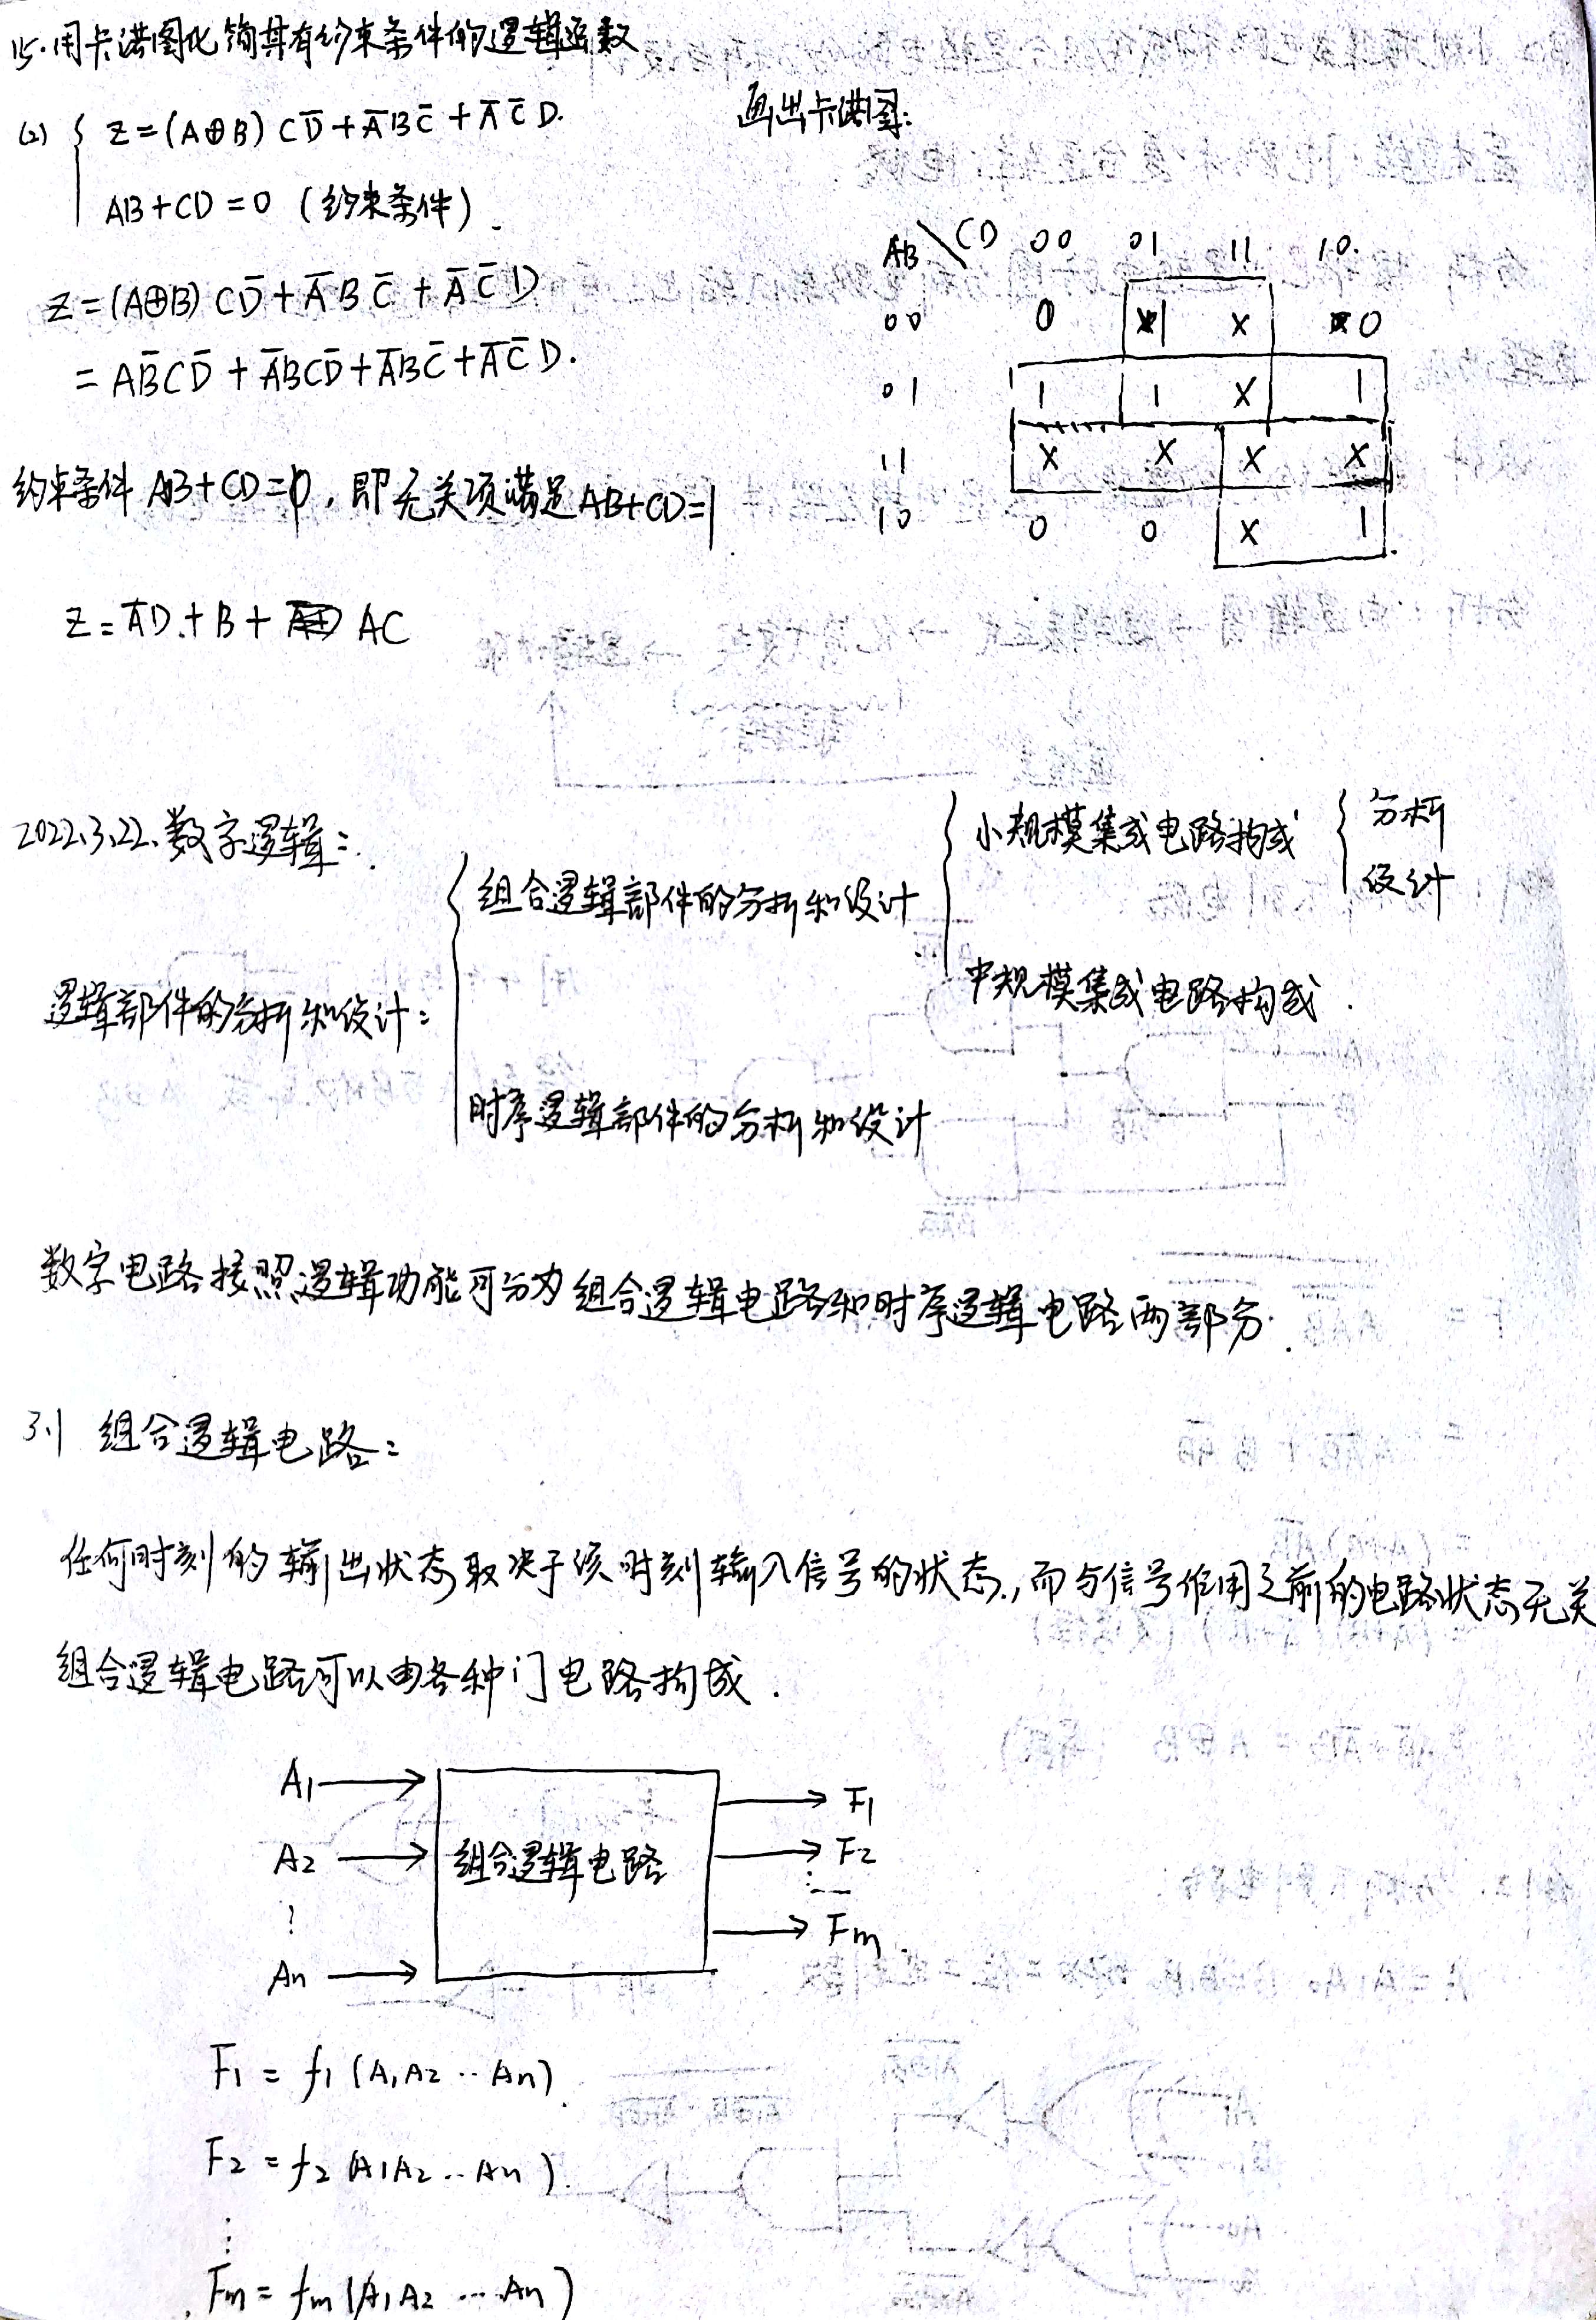 15.用卡诺图化简具有约束条件的逻辑函数
(2) { Z=(A⊕B)CD̅+A̅BC̅+A̅C̅D.
AB+CD=0 (约束条件).
Z=(A⊕B)CD̅+A̅BC̅+A̅C̅D
=AB̅CD̅+A̅BCD̅+A̅BC̅+A̅C̅D.
约束条件 AB+CD=0, 即无关项满足AB+CD=1
Z=A̅D+B+AC
画出卡诺图:
AB\CD 00 01 11 10.
00 0 1 X 0
01 1 1 X 1
11 X X X X
10 0 0 X 1
2022.3.22.数字逻辑:
逻辑部件的分析和设计:
组合逻辑部件的分析和设计
小规模集成电路构成
分析
设计
中规模集成电路构成.
时序逻辑部件的分析和设计
数字电路按照逻辑功能可分为组合逻辑电路和时序逻辑电路两部分.
3.1 组合逻辑电路:
任何时刻的输出状态取决于该时刻输入信号的状态,而与信号作用之前的电路状态无关
组合逻辑电路可以由各种门电路构成.
A1 → F1
A2 → 组合逻辑电路 → F2
⋮
An → Fm
F1=f1(A1A2··An)
F2=f2(A1A2··An).
⋮
Fm=fm(A1A2···An)